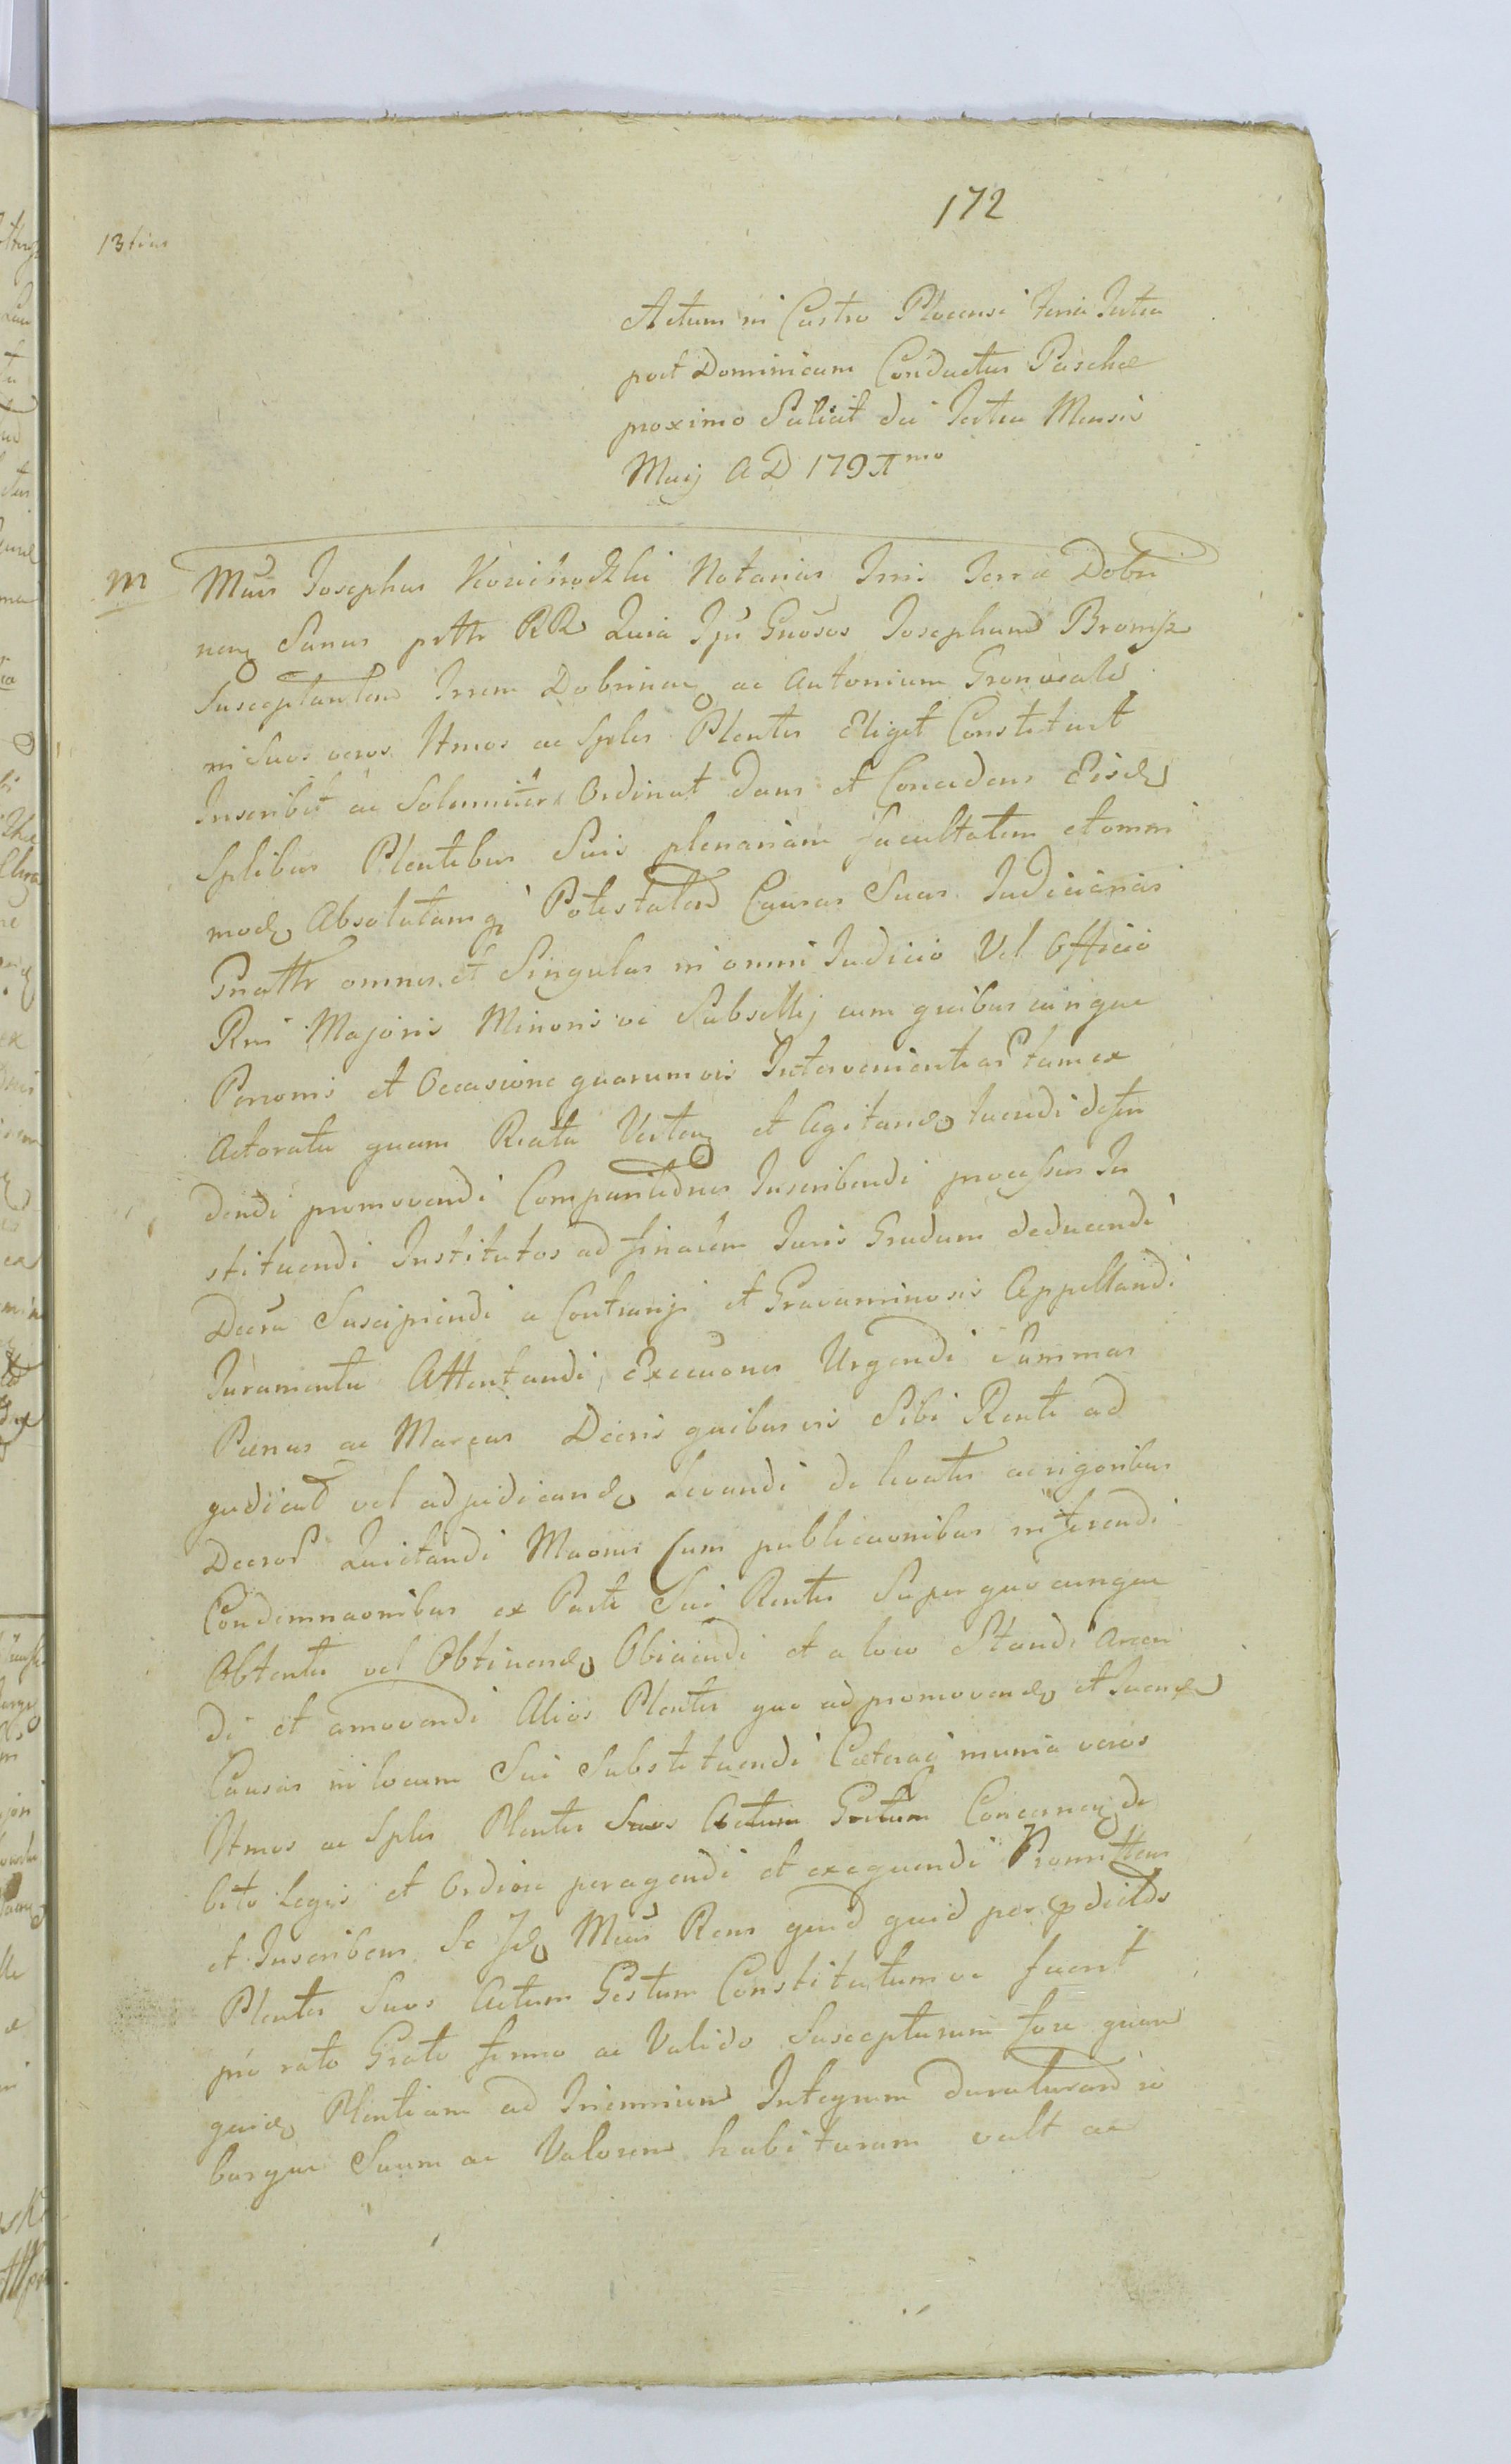 172
13tius
Actum in Castro Plocensi Feria Tertia
post Dominicam Conductus Paschæ
proximo Scilicit die Tertia Mensis
Maij A D 179
M Mcus Josephus Notarius Tris Terræ Dobri
nen Sanus pttr RR Quia Ipe Gnosos Josephum Bromirz
Susceptantem Trrem Dobrinen ac Antonium
in Suos veros Ittmos ac Sples Plentes Eliget Constituit
Inscribit ac Solenniter Ordinat Dans et Concedens Eisd
Splibus Plentibus Suis plenariam facultatem et omni
mod Absolutamq Potestatem Causas Suas Judiciarias
Gnattr omnes et Singulas in omni Judicio Vel Officio
Rni Majoris Minoris ve Subsellij cum quibus cunque
Personis et Occasione quarumvis Intervenientiar tam ex
Actoratu quam Reatu Verten et Agitand tuendi defen
dendi promovendi Comparitiones Inscribendi processus In
stituendi Institutos ad finalem Juris Gradum deducendi
Decra Suscipiendi a Contrarijs et Gravaminosis Appellandi
Juramenta Attentandi, Execuones Urgendi Summas
Pænas ac Marcas Decris quibus vis Sibi Rcnti ad
judicat vel adjudicand Levandi de levatis ac rigoribus
Decror Quietandi Maonis Cum publicaonibus in ferendi
Condemnaonibus ex Parte Sui Rentis Super quocunque
Obtentis vel Obtinend Obiiciendi et a loco Standi Arcen
di et amovendi Alios Plentes quo ad promovend et tuend
Causas in locum Sui Substituendi Cæteraq munia veros
Ittmos ac Sples Plentes Suos Actum Gestum Concernen de
bito Legis et Ordine peragendi et exequendi Promittens
et Inscribens Se Id Mcus Rcns quid quid per prdictos
Plentes Suos Actum Gestum Constitutumve fuerit
pro rato Grato firmo ac Valido Suscepturum fore quam
quid Plentiam ad Triennium Integrum duraturam ro
burque Suum ac Valorem habituram vult ac